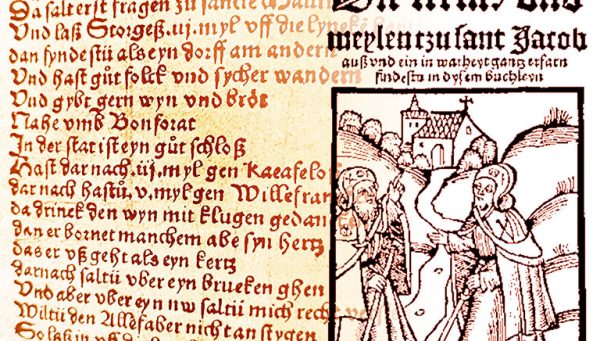 Da salt erst fragen zu sancte
Vnd laß Storgeß .iij. myl vff die lyncke
dan fyndestu als eyn dorff am andern
Vnd hast gůt folck vnd sycher wandern
Vnd gybt gern wyn vnd bröt
Nahe vmb Bonforat
In der stat ist eyn gůt schloß
Hast dar nach .iij. myl gen Kacafelo
dar nach hastu .v. myl gen Willefran
da drinck den wyn mit klugen gedan
dan er bornet manchem abe syn hertz
das er vß geht als eyn kertz
darnach saltu vber eyn brucken ghen
Vnd aber vber eyn nw saltu mich recht
Wiltu den Allefaber nicht an stygen
So laß in vff die
Die straß vnd
meylen tzu sant Jacob
auß vnd ein in warheyt gantz erfarn
findestu in dysem buchleyn